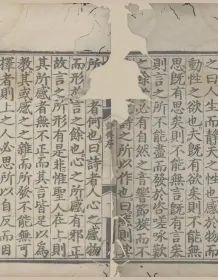 之曰人生而靜天之性也感於物而
動性之欲也夫既有欲矣則不能無
思既有思矣則不能無言既有言矣
則言之所不能盡而發於咨嗟咏歎
之必有自然之音響節族而
之所以作也曰然則其
所者何也曰詩者人心之感物
而形於言之餘也心之所感有邪正
故言之所形有是非惟聖人在上則
其所感者無不正而其言皆足以為
教其或感之之雜而所發不能無可
擇者則上之人必思所以自反而因